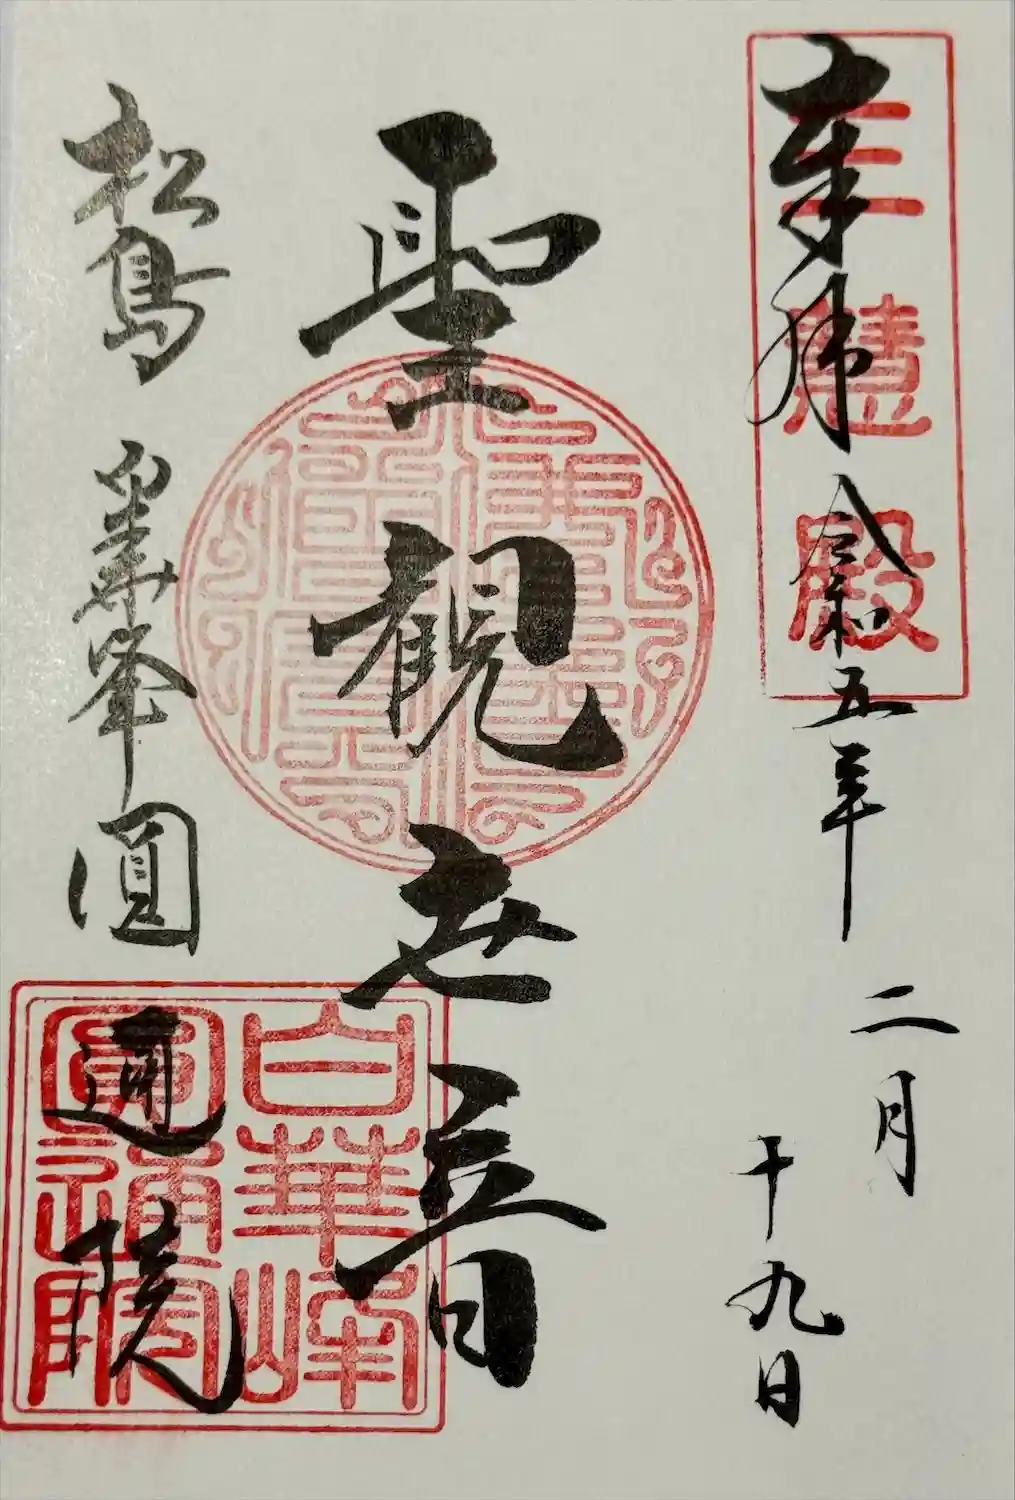 奉拝 令和五年
二月
十九日
三慧殿
聖観世音
松島 白華峰 圓通院
白華峰
圓通院